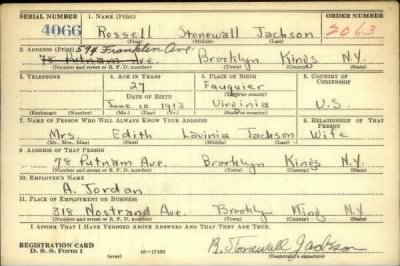 SERIAL NUMBER 1. NAME (Print) ORDER NUMBER
4066 Rossell Stonewall Jackson 2063
(First) (Middle) (Last)
2. ADDRESS (Print) 594 Franklin Ave.
78 Putnam Ave. Brooklyn Kings N.Y.
(Number and street or R. F. D. number) (Town) (County) (State)
3. TELEPHONE 4. AGE IN YEARS 5. PLACE OF BIRTH 6. COUNTRY OF CITIZENSHIP
27 Fauquier
DATE OF BIRTH (Town or county)
June 10 1913 Virginia U.S.
(Exchange) (Number) (Mo.) (Day) (Yr.) (State or country)
7. NAME OF PERSON WHO WILL ALWAYS KNOW YOUR ADDRESS 8. RELATIONSHIP OF THAT PERSON
Mrs. Edith Lavinia Jackson Wife
(Mr., Mrs., Miss) (First) (Middle) (Last)
9. ADDRESS OF THAT PERSON
78 Putnam Ave. Brooklyn Kings N.Y.
(Number and street or R. F. D. number) (Town) (County) (State)
10. EMPLOYER'S NAME
A. Jordan
11. PLACE OF EMPLOYMENT OR BUSINESS
318 Nostrand Ave. Brooklyn King N.Y.
(Number and street or R. F. D. number) (Town) (County) (State)
I AFFIRM THAT I HAVE VERIFIED ABOVE ANSWERS AND THAT THEY ARE TRUE.
REGISTRATION CARD
D. S. S. Form 1 16—17105 R. Stonewall Jackson
(Registrant's signature)